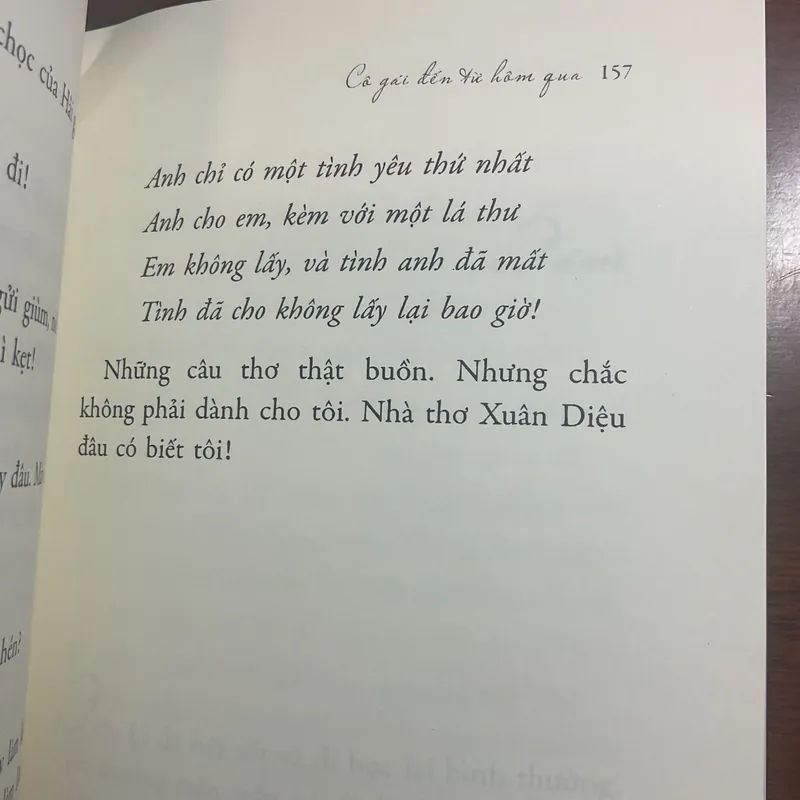 chọc của
đi!
gửi giùm,
kẹt!
đâu.
Cô gái đến từ hôm qua 157
Anh chỉ có một tình yêu thứ nhất
Anh cho em, kèm với một lá thư
Em không lấy, và tình anh đã mất
Tình đã cho không lấy lại bao giờ!
Những câu thơ thật buồn. Nhưng chắc
không phải dành cho tôi. Nhà thơ Xuân Diệu
đâu có biết tôi!